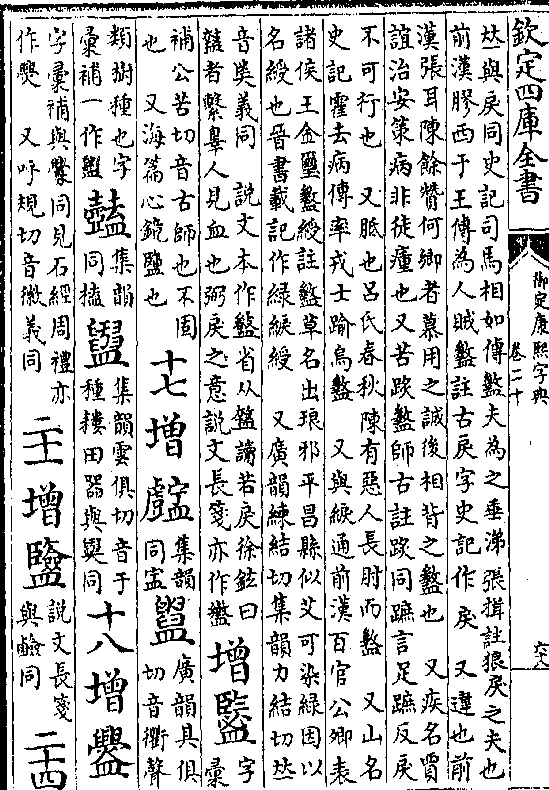 欽定四庫全書
御定康熙字典
卷二十
六十八
𠀤與戾同史記司馬相如傳盭夫為之垂涕張揖註狼戾之夫也
前漢膠西于王傳為人賊盭註古戾字史記作戾　又違也前
漢張耳陳餘贊何鄉者慕用之誠後相背之盭也　又疾名賈
誼治安策病非徒瘇也又苦𨂂盭師古註𨂂同蹠言足蹠反戾
不可行也　又胝也呂氏春秋陳有惡人長肘而盭　又山名
史記霍去病傳率戎士踰烏盭　又與綟通前漢百官公卿表
諸侯王金璽盭綬註盭草名出琅邪平昌縣似艾可染綠因以
名綬也晉書載記作綠綟綬　又廣韻練結切集韻力結切𠀤
音㑦義同　說文本作盭省从盩讀若戾徐鉉曰
盩者繫辠人見血也弼戾之意說文長箋亦作盭　增盬　字彙
補公苦切音古師也不固
也　又海篇心鏡鹽也　十七　增　集韻同　廣韻其俱切音衢聲
類樹種也字
彙補一作　集韻同榼　集韻雲俱切音于種耬田器與同　十八　增
字彙補與釁同見石經周禮亦
作釁　又呼規切音微義同　二十　增　說文長箋與鹼同　二十四